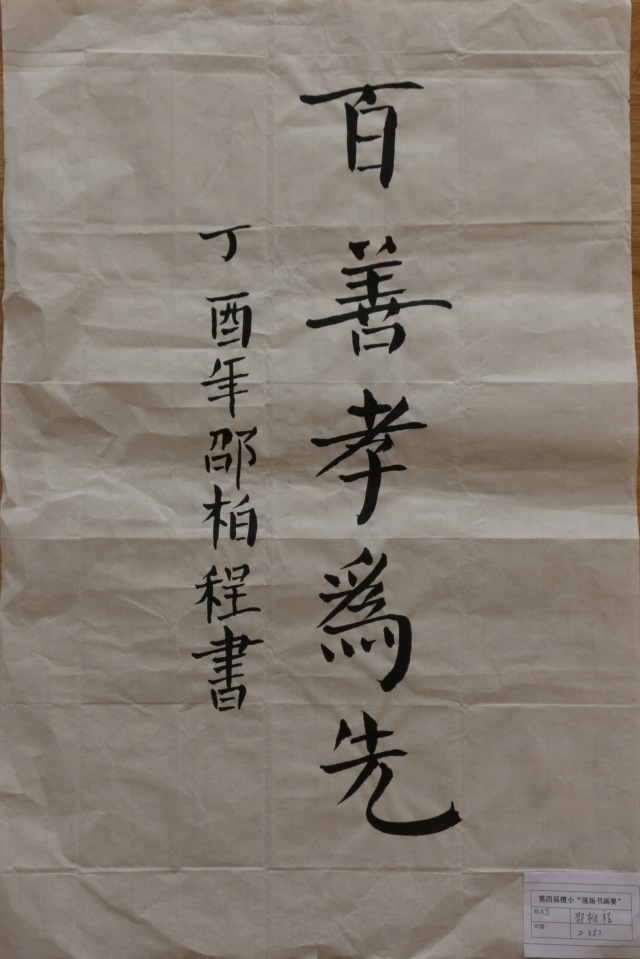 百善孝為先
丁酉年邵柏程書
第四届檀小“现场书画赛”
姓名
邵柏程
班级
2（5）